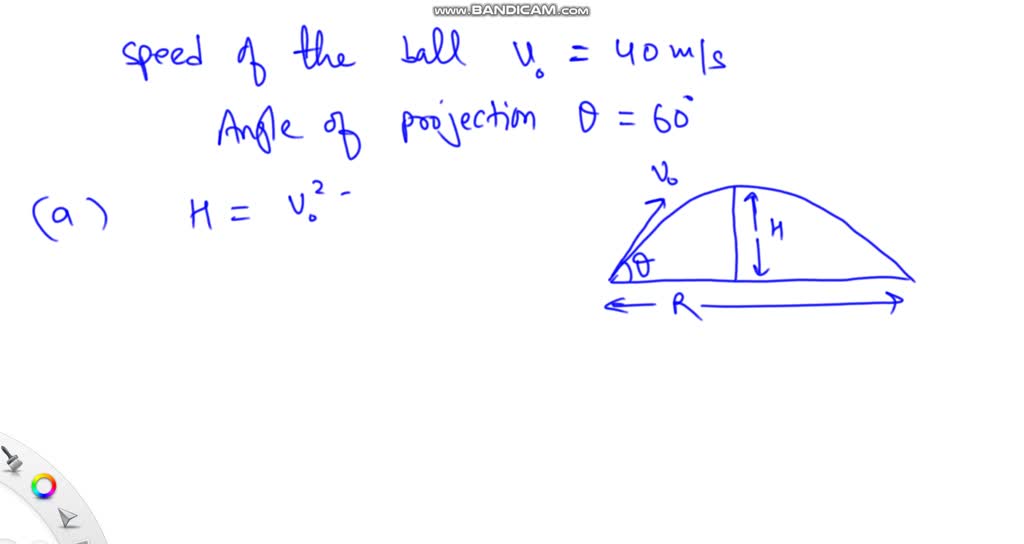 www.BANDICAM.com
speed of the ball v₀ = 40 m/s
Angle of projection θ = 60°
(a) H = v₀² -
v₀
H
θ
R